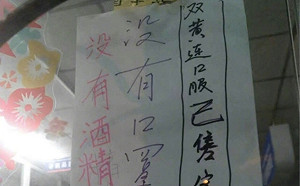 双黄连口服已售空
没有口罩
没有酒精